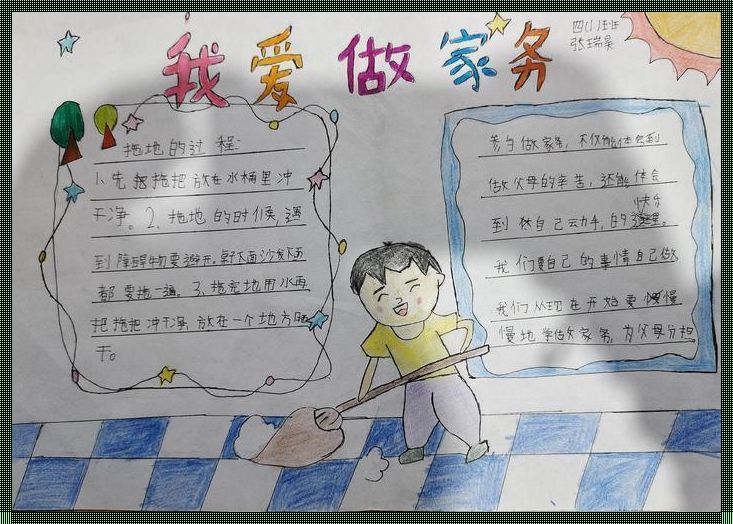 我爱做家务
四(1)班
张瑞昊
拖地的过程:
1、先把拖把放在水桶里冲
干净。2、拖地的时候,遇
到障碍物要避开,桌下面沙发下面
都要拖一遍。3、拖完地用水再
把拖把冲干净,放在一个地方晒
干。
参与做家务,不仅能体会到
做父母的辛苦,还能体会
快乐
到独自己动手,的道理。
我们要自己的事情自己做
我们从现在开始要慢慢
慢地学做家务,为父母分担